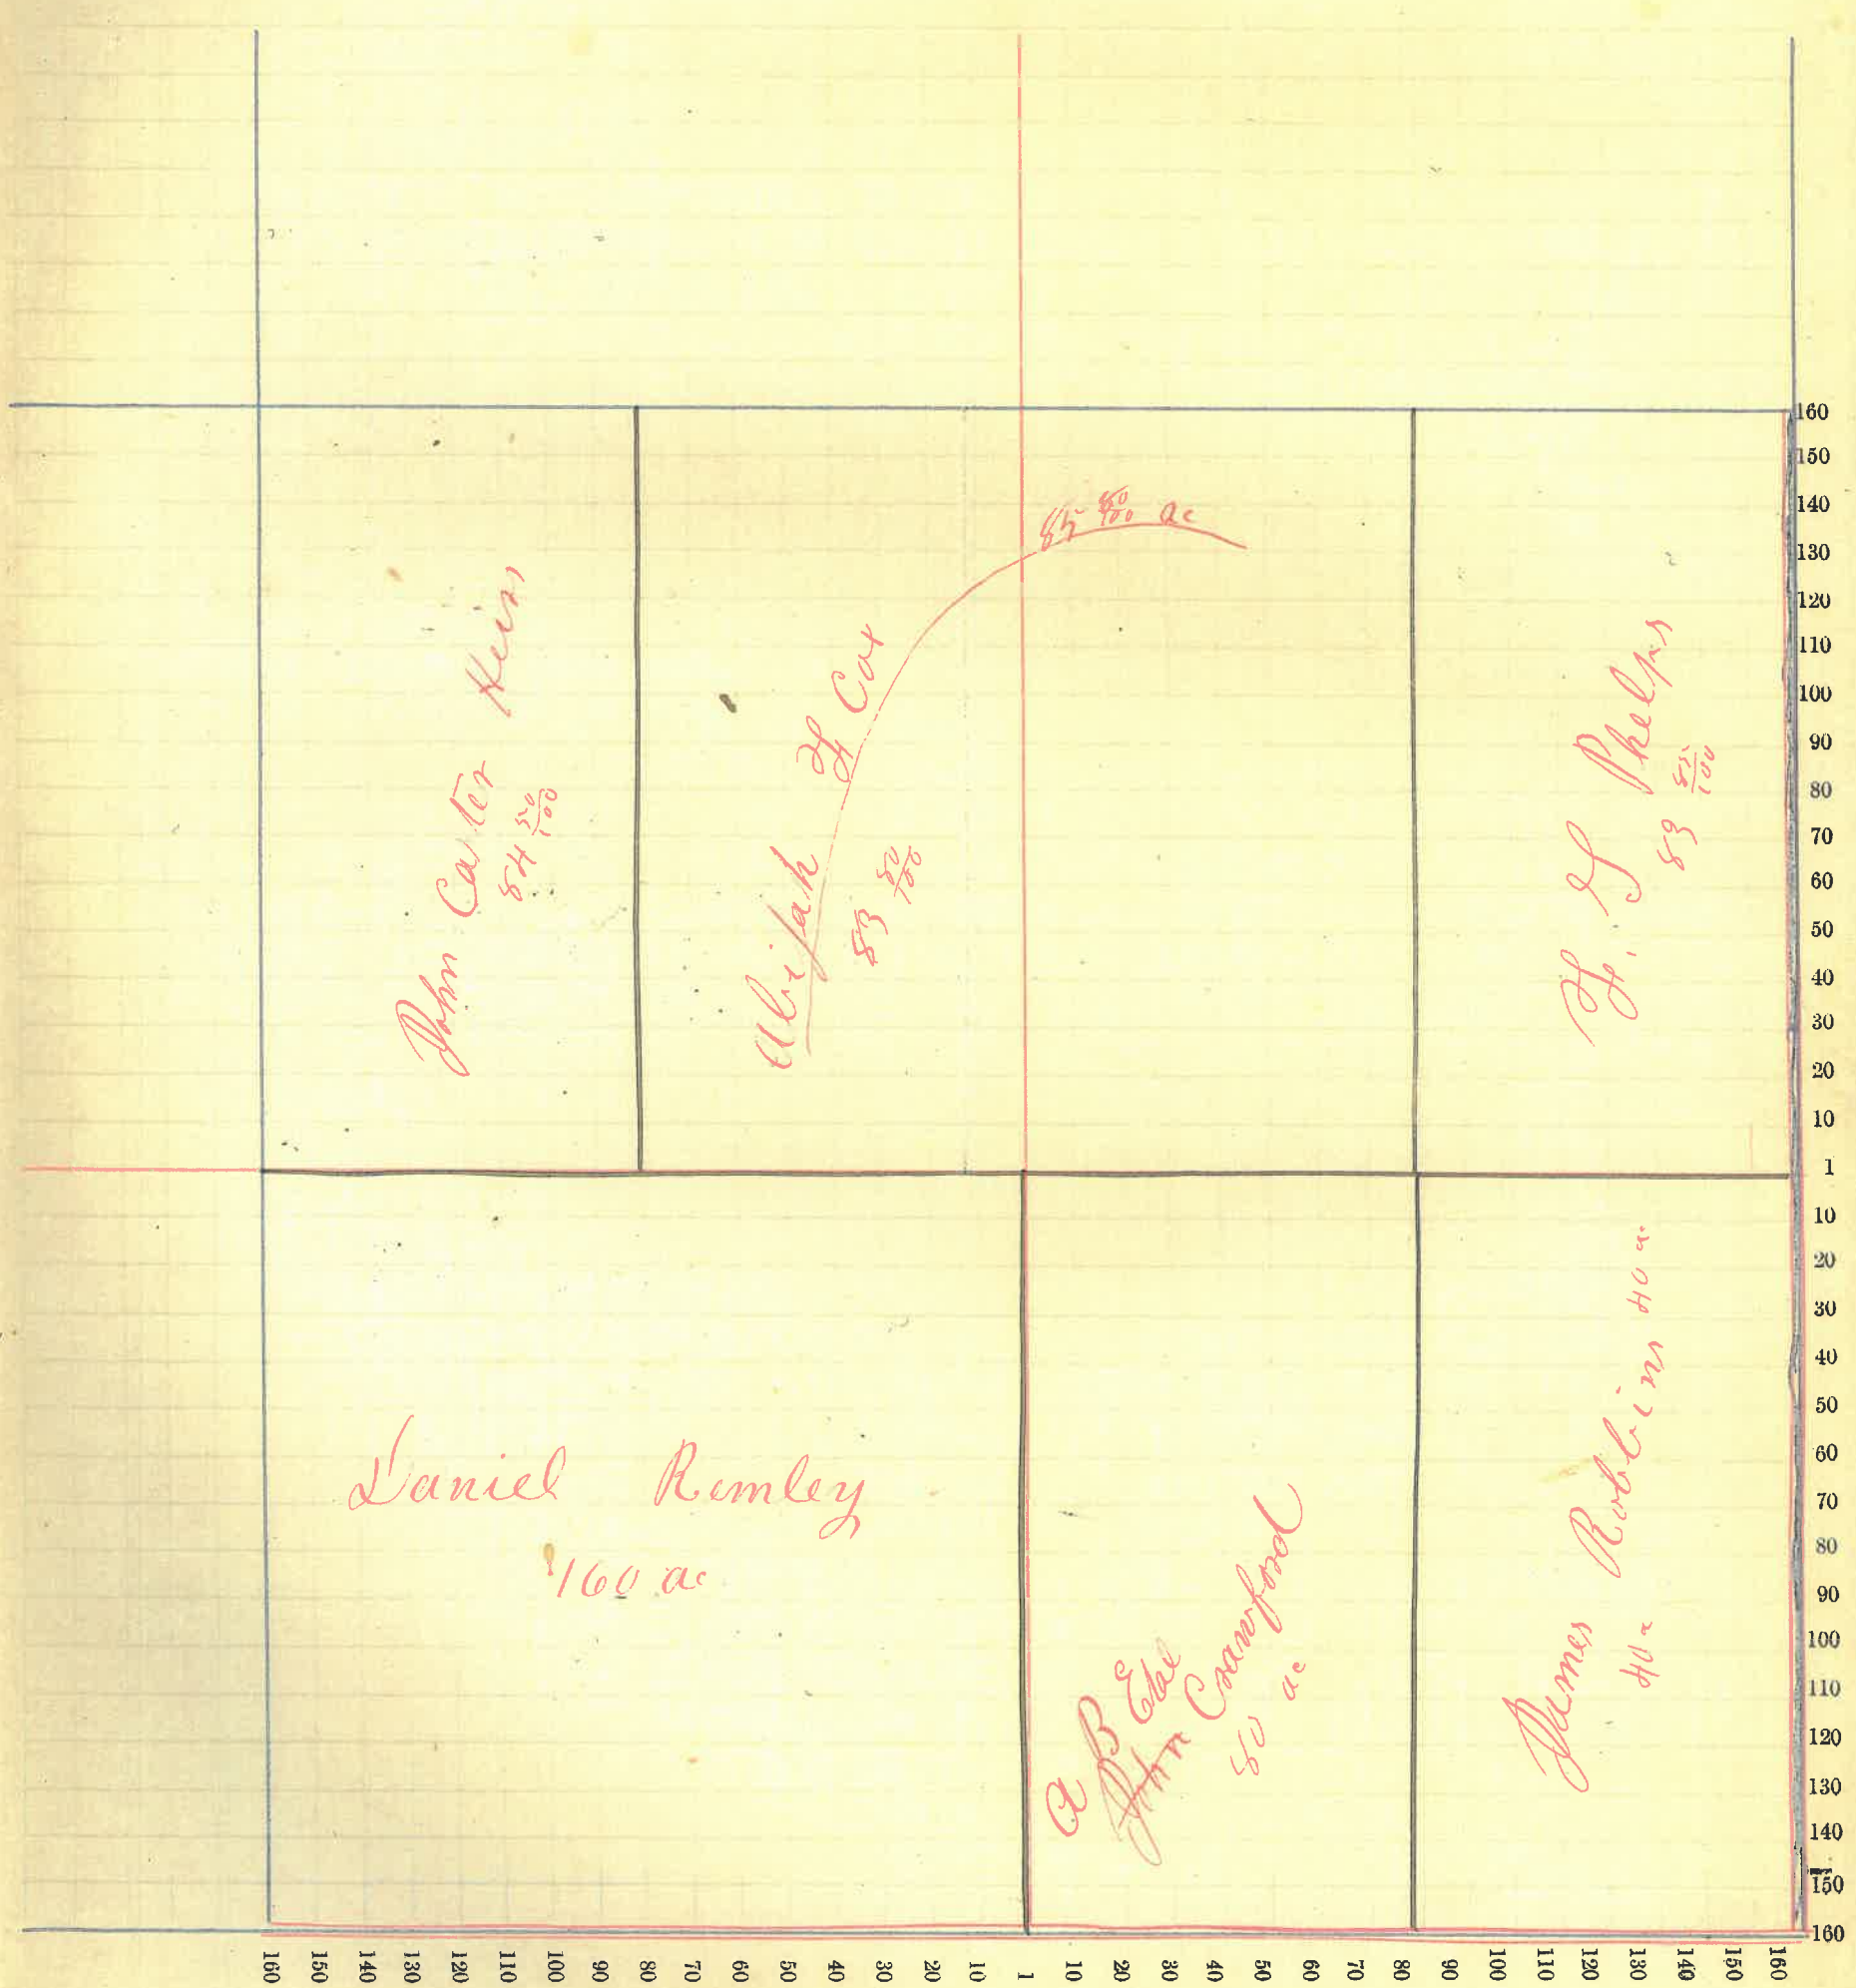 John Carter Heirs
84 50/100
Abijah H Cox
83 50/100
85 50/100 ac
H. S Phelps
83 85/100
Daniel Remley
160 ac
A B
John Crawford
80 ac
James Robbins
40 a
40 a
160
150
140
130
120
110
100
90
80
70
60
50
40
30
20
10
1
10
20
30
40
50
60
70
80
90
100
110
120
130
140
150
160
160 150 140 130 120 110 100 90 80 70 60 50 40 30 20 10 1 10 20 30 40 50 60 70 80 90 100 110 120 130 140 150 160